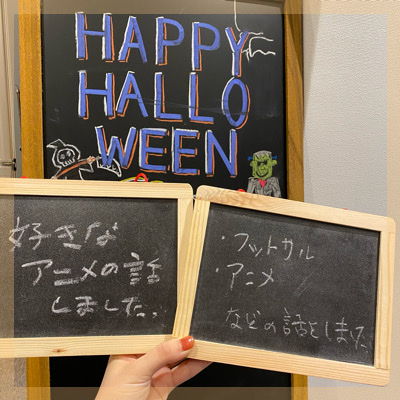 HAPPY
HALLO
WEEN
好きな
アニメの話
しました.
・フットサル
・アニメ
などの話をしました